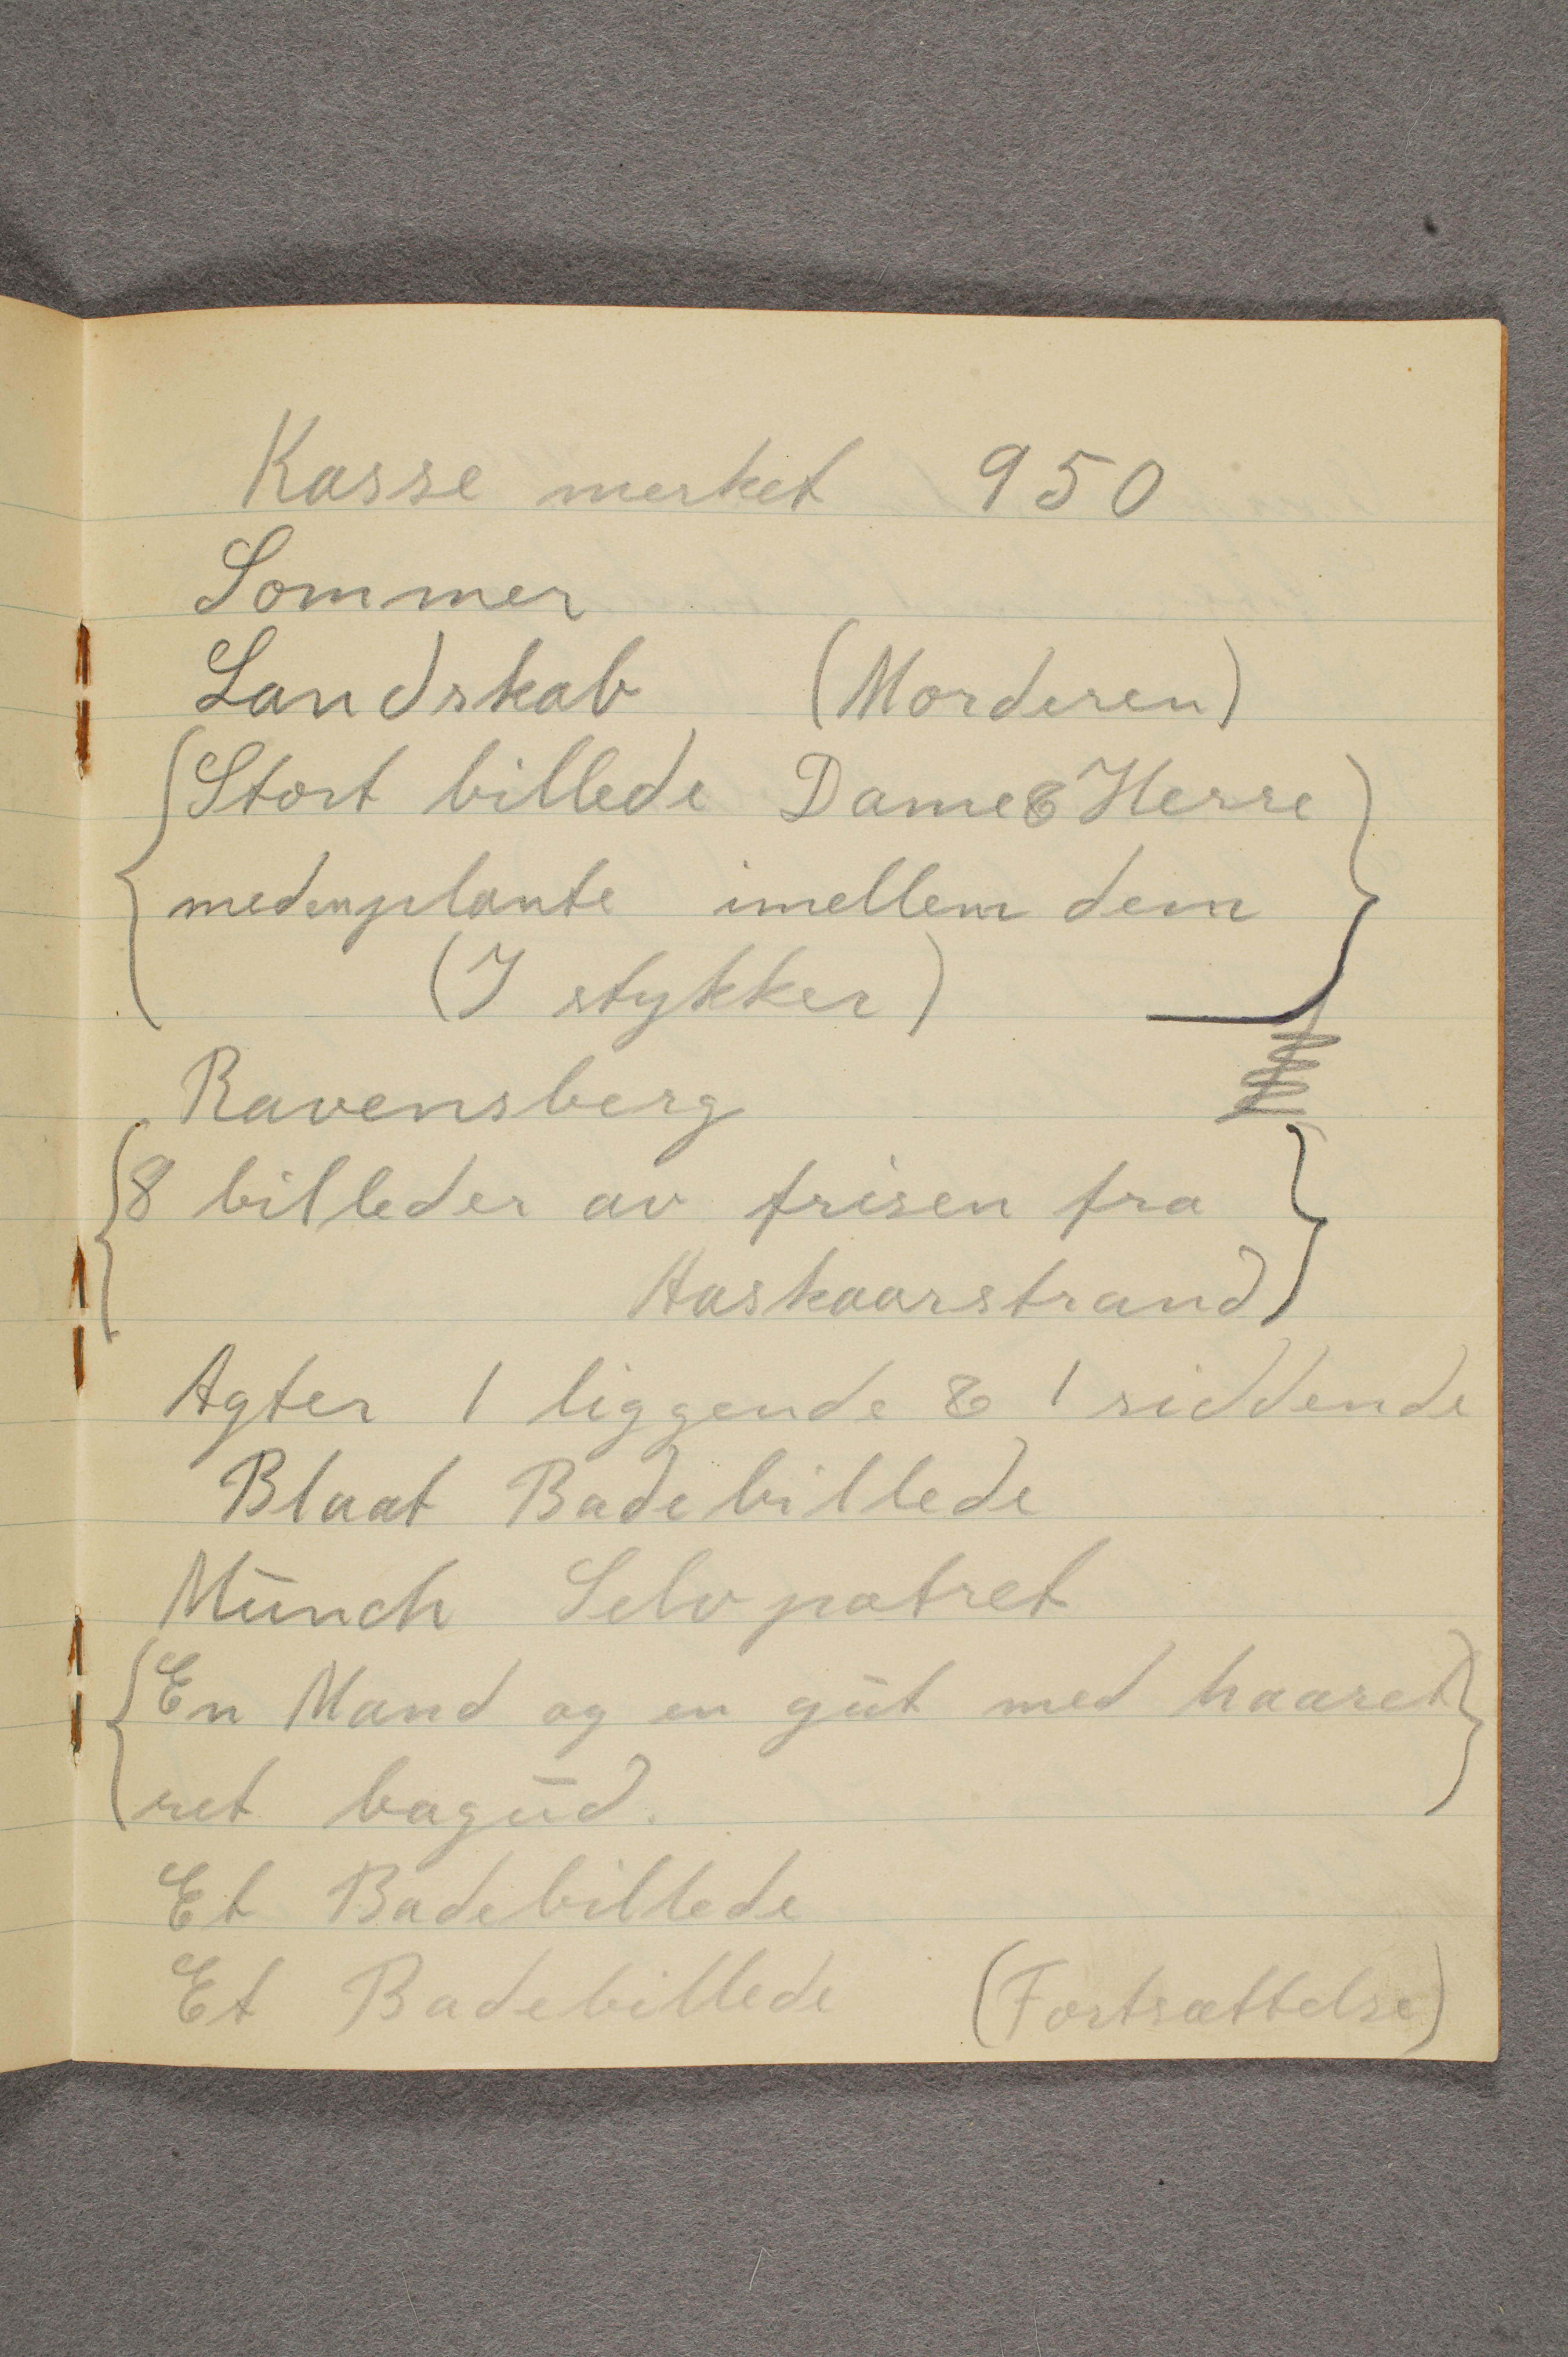 Kasse merket 950
Sommer
Landskab (Morderen)
Stort billede Dame & Herre
med en plante imellem dem
(I stykker)
Ravensberg
8 billeder av frisen fra
Aaskaarstrand
Agter 1 liggende & 1 siddende
Blaat Badebillede
Münch Selvpatret
En Mand og en gūt med haaret
ret bagūd.
Et Badebillede
Et Badebillede (Fortsættelse)